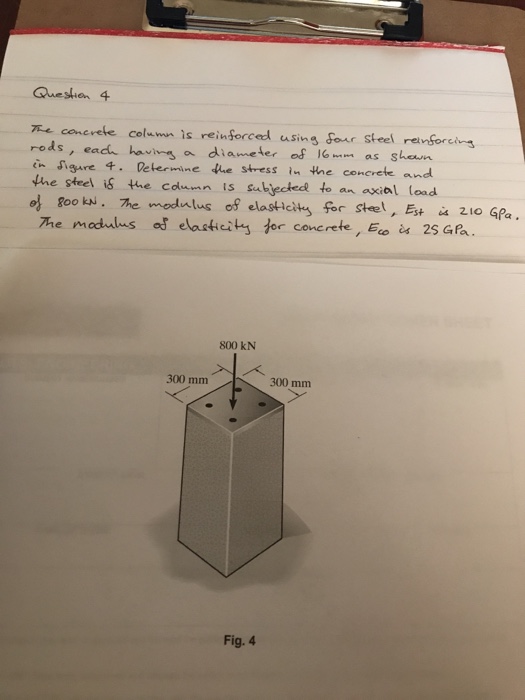 Question 4
The concrete column is reinforced using four steel reinforcing
rods, each having a diameter of 16mm as shown
in figure 4. Determine the stress in the concrete and
the steel if the column is subjected to an axial load
of 800 kN. The modulus of elasticity for steel, Est is 210 GPa.
The modulus of elasticity for concrete, Eco is 25 GPa.
800 kN
300 mm
300 mm
Fig. 4